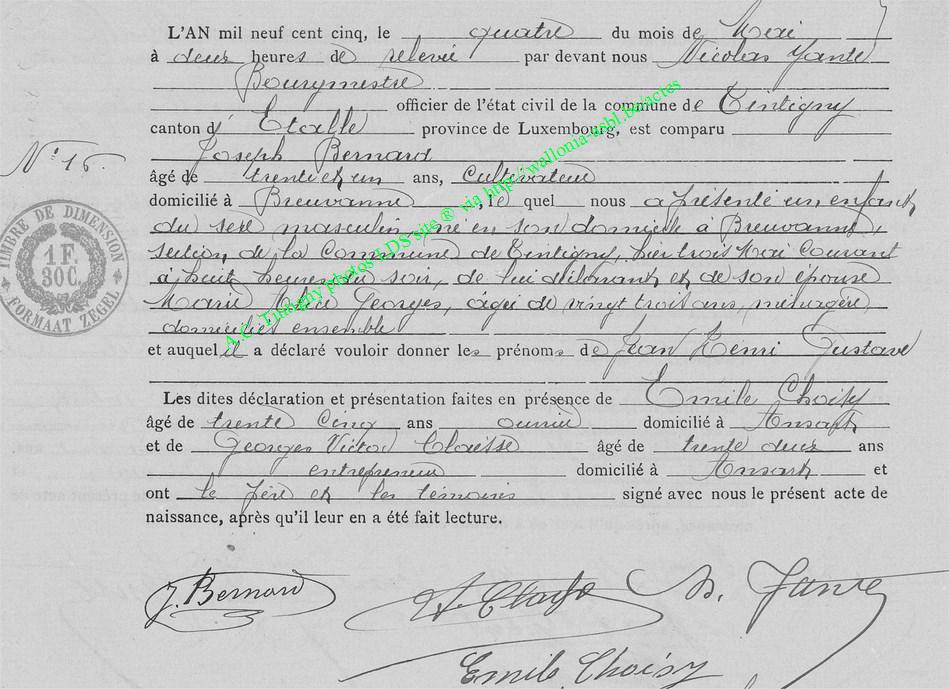 L'AN mil neuf cent cinq, le quatre du mois de Mai
à deux heures de relevée par devant nous Nicolas Jante
Bourgmestre
officier de l'état civil de la commune de Tintigny
canton d' Etalle province de Luxembourg, est comparu
Joseph Bernard
N° 16.
âgé de trente et un ans, Cultivateur
domicilié à Breuvanne, le quel nous a présenté un enfant
du sexe masculin, né en son domicile à Breuvanne,
section de la Commune de Tintigny, hier trois Mai Courant
à huit heures du soir, de lui déclarant et de son épouse
Marie Georges, âgée de vingt trois ans, ménagère,
domiciliés ensemble
et auquel il a déclaré vouloir donner les prénoms de Jean Rémi Gustave
Les dites déclaration et présentation faites en présence de Emile Choisy
âgé de trente cinq ans ouvrier domicilié à Ansart
et de Georges Victor Claisse âgé de trente deux ans
entrepreneur domicilié à Ansart et
ont le père et les témoins signé avec nous le présent acte de
naissance, après qu'il leur en a été fait lecture.
J. Bernard
N. Jante
Emile Choisy
TIMBRE DE DIMENSION
1 F.
30 C.
FORMAAT ZEGEL
A.C. Tintigny photos LDS site ® via http://wallonia-asbl.be/actes